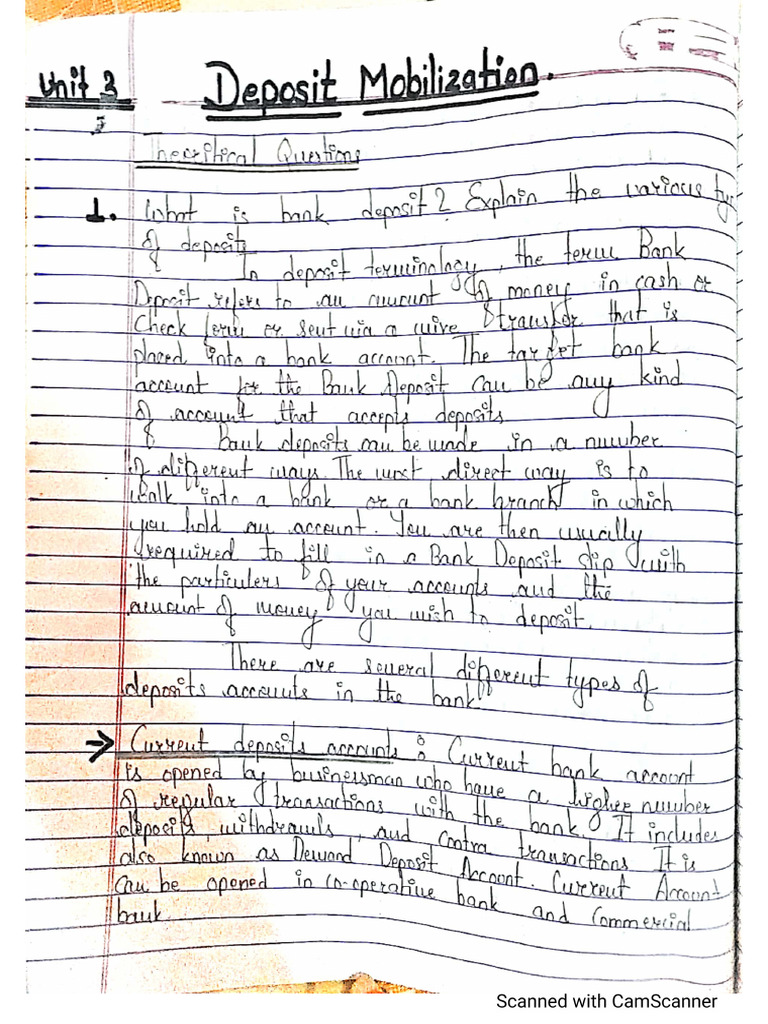 Unit 3 Deposit Mobilization.
Theoritical Questions
1. What is bank deposit? Explain the various ty
of deposits
In deposit terminology, the term Bank
Deposit refers to an amount of money in cash or
Check form or sent via a wire transfer that is
placed into a bank account. The target bank
account for the Bank Deposit can be any kind
of account that accepts deposits
Bank deposits can be made in a number
of different ways. The most direct way is to
walk into a bank or a bank branch in which
you hold an account. You are then usually
required to fill in a Bank Deposit slip with
the particulers of your accounts and the
amount of money you wish to deposit.
There are several different types of
deposits accounts in the bank
→ Current deposits accounts : Current bank account
is opened by businessman who have a higher number
of regular transactions with the bank. It includes
deposits, withdrawls, and contra transactions It is
also known as Demand Deposit Account. Current Account
can be opened in co-operative bank and Commercial
bank
Scanned with CamScanner